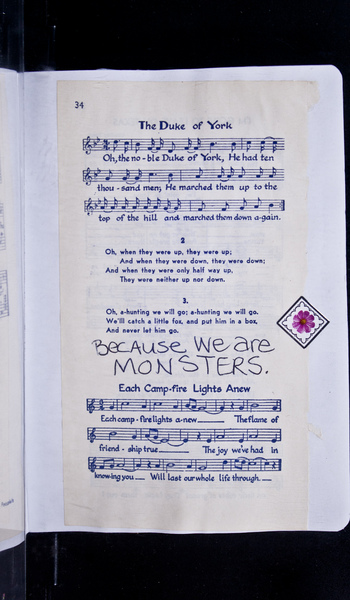 34
The Duke of York
Oh, the no-ble Duke of York, He had ten
thou-sand men; He marched them up to the
top of the hill and marched them down a-gain.
2
Oh, when they were up, they were up;
And when they were down, they were down;
And when they were only half way up,
They were neither up nor down.
3.
Oh, a-hunting we will go; a-hunting we will go.
We'll catch a little fox, and put him in a box,
And never let him go.
Because we are
MONSTERS.
Each Camp-fire Lights Anew
Each camp-fire lights a-new The flame of
friend-ship true The joy we've had in
know-ing you Will last our whole life through.